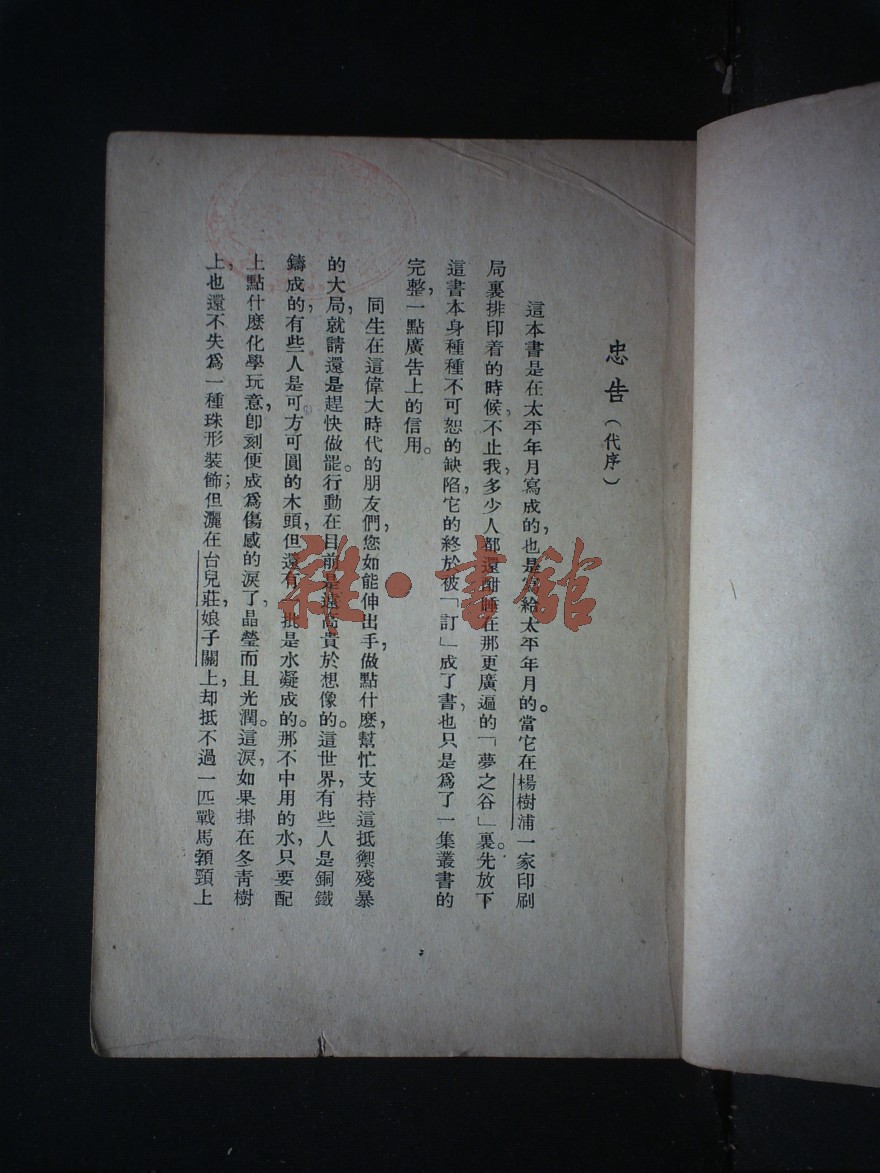 忠告(代序)
這本書是在太平年月寫成的,也是寫給太平年月的。當它在楊樹浦一家印刷
局裏排印着的時候,不止我,多少人都還酣睡在那更廣遍的「夢之谷」裏。先放下
這書本身種種不可恕的缺陷,它的終於被「訂」成了書,也只是爲了一集叢書的
完整,一點廣告上的信用。
同生在這偉大時代的朋友們,您如能伸出手,做點什麼,幫忙支持這抵禦殘暴
的大局,就請還是趕快做罷。行動在目前是遠高貴於想像的。這世界,有些人是銅鐵
鑄成的,有些人是可方可圓的木頭,但還有一批是水凝成的。那不中用的水,只要配
上點什麼化學玩意,卽刻便成爲傷感的淚了,晶瑩而且光潤。這淚,如果掛在冬靑樹
上,也還不失爲一種珠形裝飾;但灑在台兒莊,娘子關上,却抵不過一匹戰馬頸上
雜·書館